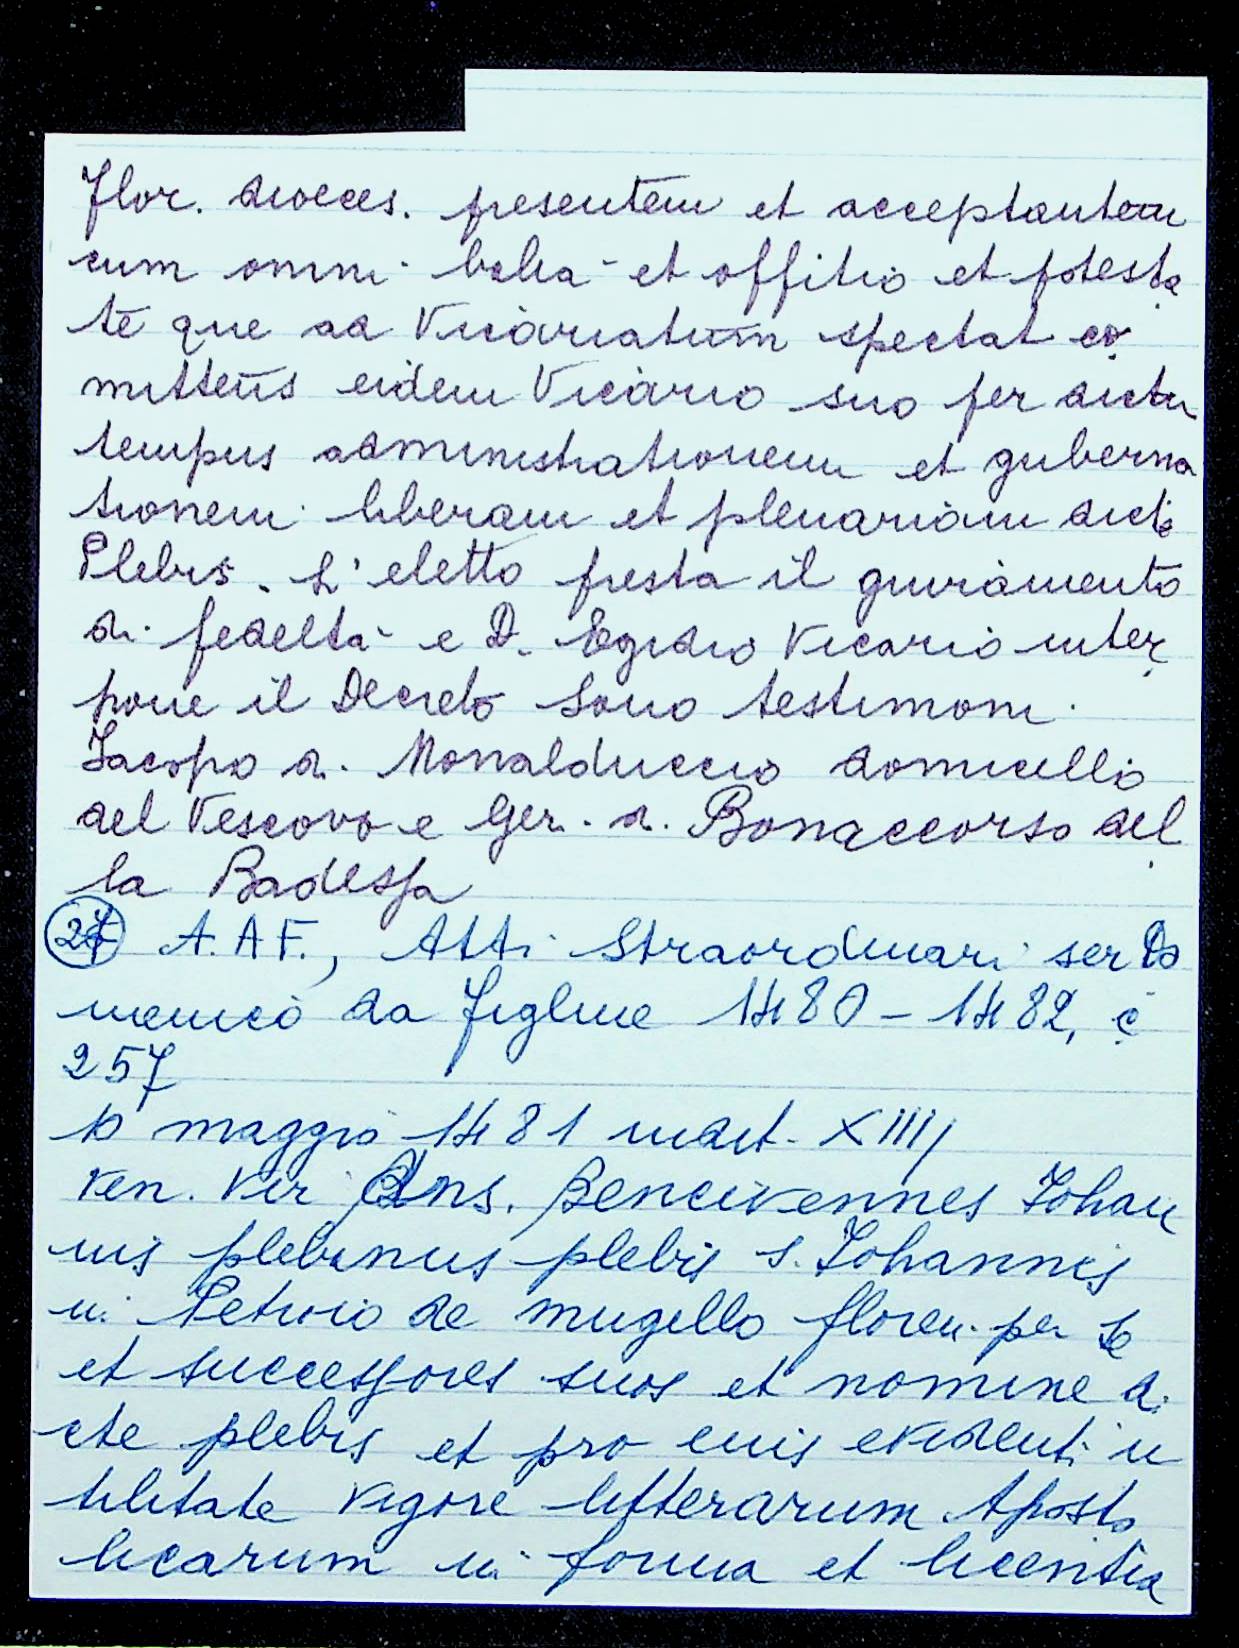 Flor. dioces. presentem et acceptantem
cum omni balia et offitio et potesta
te que ad Vicariatum spectat co
mittens eidem Vicario suo per dictu
tempus administrationem et guberna
tionem liberam et plenariam dicte
Plebis. L'eletto presta il giuramento
di fedeltà e D. Egidio Vicario inter
pone il Decreto Sono testimoni
Iacopo di Monalduccio domicello
del Vescovo e Ger. di Bonaccorso del
la Badessa
27 A.A.F., Atti Straordinari ser Do
menico da Figline 1480-1482, c
257
10 maggio 1481 indict. XIIII
Ven. Vir Dns. Bencivennes Iohan
nis plebanus plebis S. Iohannis
in Petroio de mugello floren. per se
et successores suos et nomine di
cte plebis et pro eius evidenti u
tilitate vigore litterarum Aposto
licarum in forma et licentia